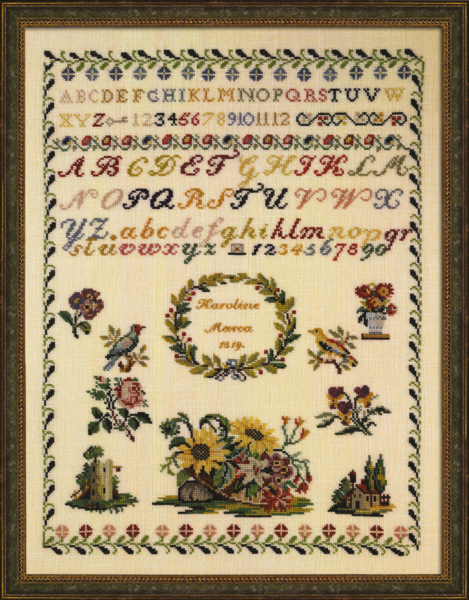 ABCDEFGHIKLMNOPQRSTUVW
XYZ 123466789101112
ABCDEFGHIKLM
NOPQRSTUVWX
YZ. abcdefghiklmnopqr
stuvwxyz 1234567890
Karoline
Marca
1819.